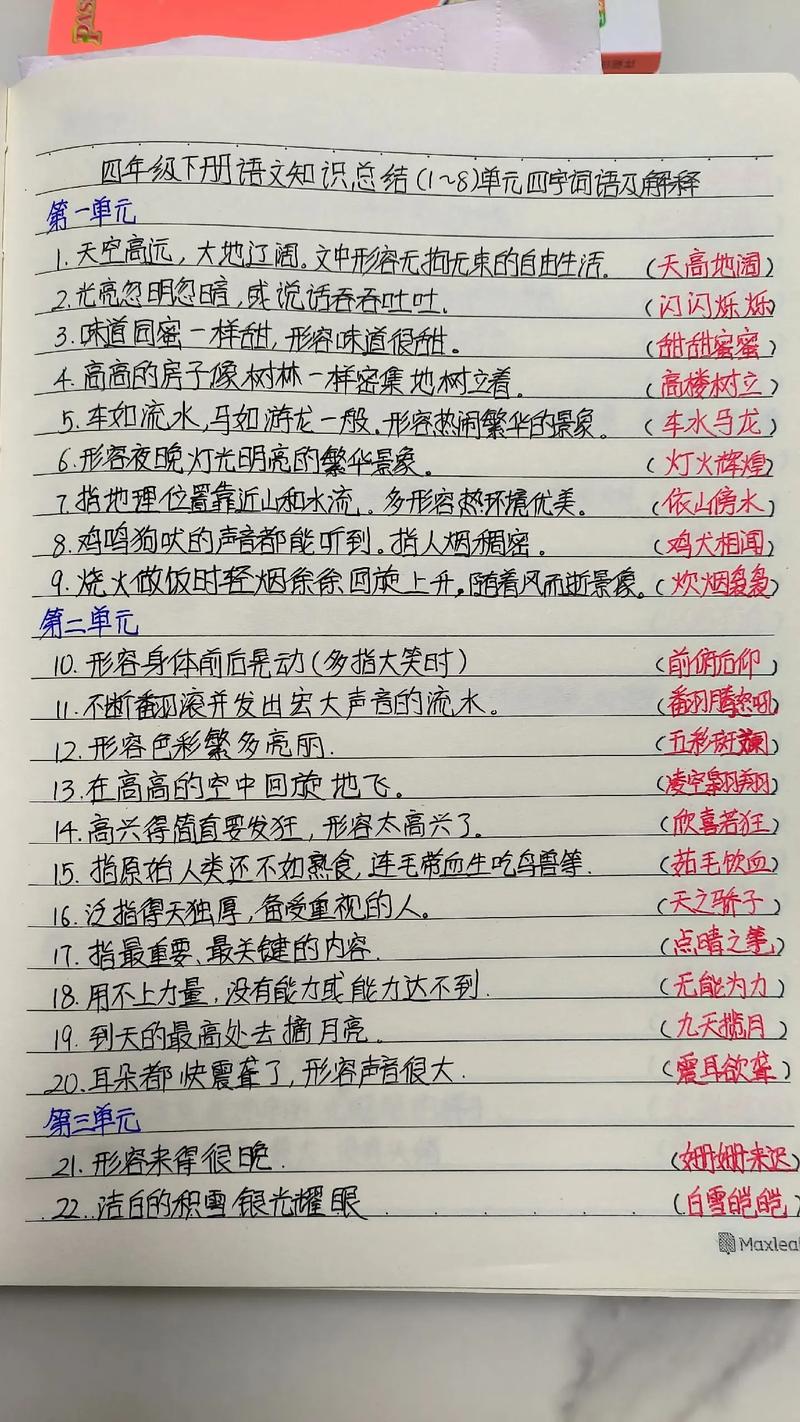 四年级下册语文知识总结(1~8)单元四字词语及解释
第一单元
1.天空高远，大地辽阔。文中形容无拘无束的自由生活。（天高地阔）
2.光亮忽明忽暗，或说话吞吞吐吐.（闪闪烁烁）
3.味道同蜜一样甜，形容味道很甜。（甜甜蜜蜜）
4.高高的房子像树林一样密集地树立着。（高楼树立）
5.车如流水,马如游龙一般.形容热闹繁华的景象。（车水马龙）
6.形容夜晚灯光明亮的繁华景象。（灯火辉煌）
7.指地理位置靠近山和水流。多形容热环境优美。（依山傍水）
8.鸡鸣狗吠的声音都能听到。指人烟稠密。（鸡犬相闻）
9.烧火做饭时轻烟徐徐回旋上升。随着风而逝景象。（炊烟袅袅）
第二单元
10.形容身体前后晃动(多指大笑时)（前俯后仰）
11.不断翻滚并发出宏大声音的流水。（翻腾怒吼）
12.形容色彩繁多亮丽.（五彩斑斓）
13.在高高的空中回旋地飞。（凌空翱翔）
14.高兴得简直要发狂，形容太高兴了。（欣喜若狂）
15.指原始人类还不如熟食,连毛带血生吃鸟兽等.（茹毛饮血）
16.泛指得天独厚,备受重视的人。（天之骄子）
17.指最重要、最关键的内容.（点睛之笔）
18.用不上力量，没有能力或能力达不到.（无能为力）
19.到天的最高处去摘月亮。（九天揽月）
20.耳朵都快震聋了,形容声音很大.（震耳欲聋）
第三单元
21.形容来得很晚.（姗姗来迟）
22.洁白的积雪银光耀眼（白雪皑皑）
Maxleaf